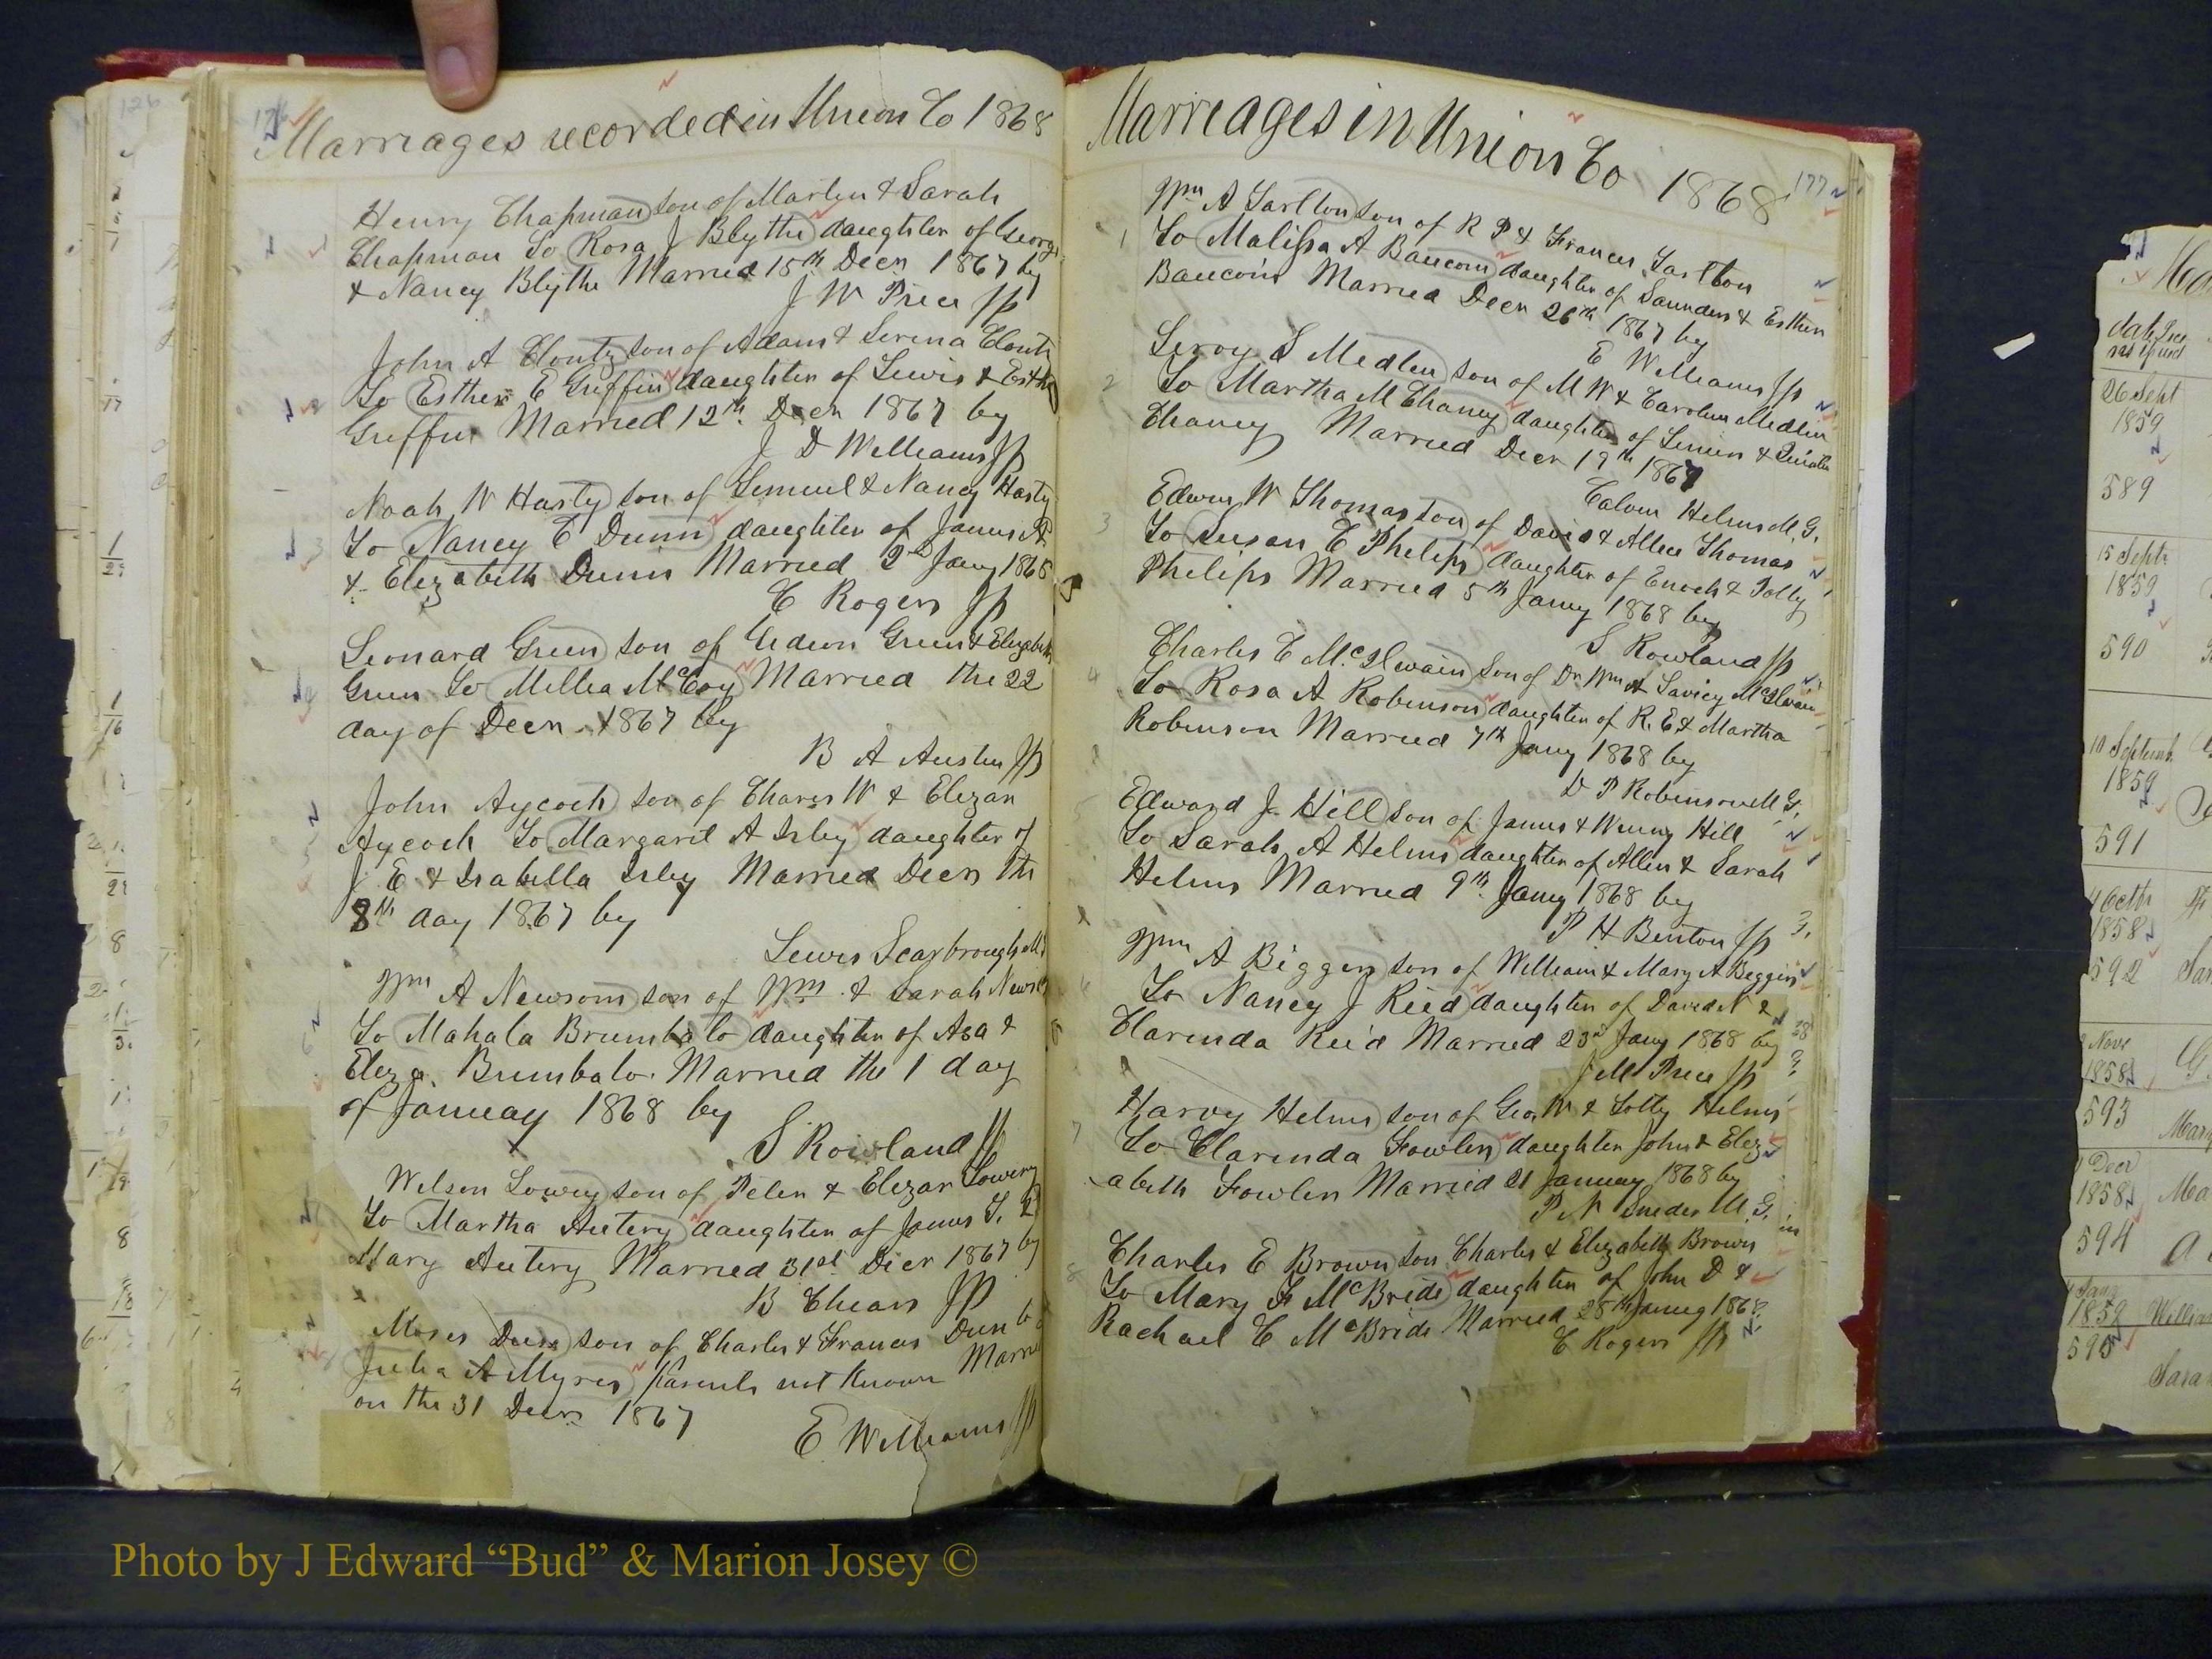 176
Marriages recorded in Union Co 1868
Henry Chapman son of Marlin & Sarah
Chapman To Rosa J Blythe daughter of George
& Nancy Blythe Married 15th Decr 1867 by
J W Price JP
John A Clontz son of Adam & Serena Clontz
To Esther E Griffin daughter of Lewis & Esther
Griffin Married 12th Decr 1867 by
J D Williams JP
Noah W Hasty son of Lemuel & Nancy Hasty
To Nancy C Dunn daughter of James A
& Elizabeth Dunn Married 2d Jany 1868
C Rogers JP
Leonard Green son of Gideon Green & Elizabeth
Green To Millia McCoy Married the 22
day of Decr 1867 by
B A Austin JP
John Aycoch son of Charis W & Elizar
Aycoch To Margaret A Irby daughter of
J E & Isabella Irby Married Decr the
8th day 1867 by
Lewis Scarbrough
Wm A Newsom son of Wm & Sarah
To Mahala Brumbalo daughter of Asa &
Eliza Brumbalo Married the 1 day
of Januay 1868 by
S Rowland JP
Wilson Lowry son of Peter & Elizar Lowery
To Martha Autery daughter of James T. &
Mary Autery Married 31st Decr 1867 by
B Chears JP
Moses Dun son of Charles & Frances Dun to
Julia A Myres parents not Known Married
on the 31 Decr 1867
E Williams JP
Marriages in Union Co 1868
177
Wm A Tarlton son of R P & Frances Tarlton
1 To Malissa A Baucom daughter of Saunders & Esther
Baucom Married Decr 26th 1867 by
E Williams JP
Leroy S Medlin son of M W & Caroline Medlin
2 To Martha M Chaney daughter of &
Chaney Married Decr 19th 1867
Calvin Helms M.G.
Edwin W Thomas son of David & Allee Thomas
3 To Susan E Philips daughter of Enoch & Polly
Philips Married 5th Jany 1868 by
S Rowland JP
Charles E McIlwain Son of Dr Wm & Savicy McIlwain
4 To Rosa A Robinson daughter of R. E & Martha
Robinson Married 7th Jany 1868 by
D P Robinson M G.
Edward J. Hill son of James & Winny Hill
5 To Sarah A Helms daughter of Allen & Sarah
Helms Married 9th Jany 1868 by
P H Benton JP
Wm A Biggers son of William & Mary A Biggers
6 To Nancy J Reid daughter of David N &
Clarinda Reid Married 23d Jany 1868 by
J M Price JP
Harvy Helms son of Geo. W & Lotty Helms
7 To Clarinda Fowler daughter John & Eliz
abeth Fowler Married 21 January 1868 by
P N Snider M.G.
Charles E Brown son Charles & Elizabeth Brown
8 To Mary F McBride daughter of John D &
Rachael C McBride Married 28th Januy 1868
C Rogers JP
26 Sept
1859
589
15 Septr
1859
590
10 Septemb
1859
591
4 Octr
1858
592
Nove
1858
593
Decr
1858
594
1859
595
Photo by J Edward “Bud” & Marion Josey ©